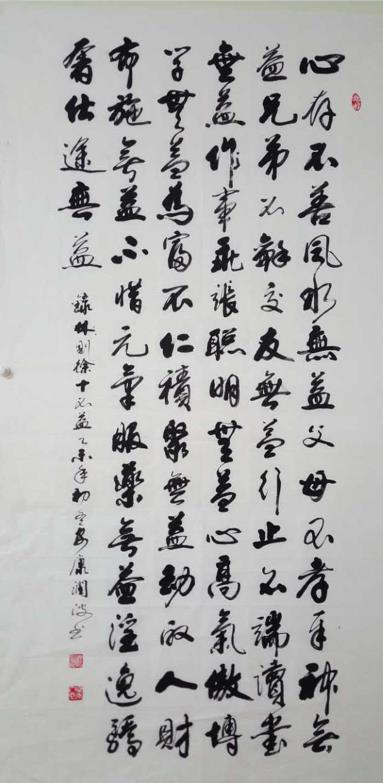 心存不善風水無益父母不孝奉神無
益兄弟不龢交友無益行止不端讀書
無益作事乖張聰明無益心高氣傲博
學無益為富不仁積聚無益劫取人財
布施無益不惜元氣服藥無益淫逸驕
奢仕途無益
錄林則徐十無益乙未年初冬安康潤波書